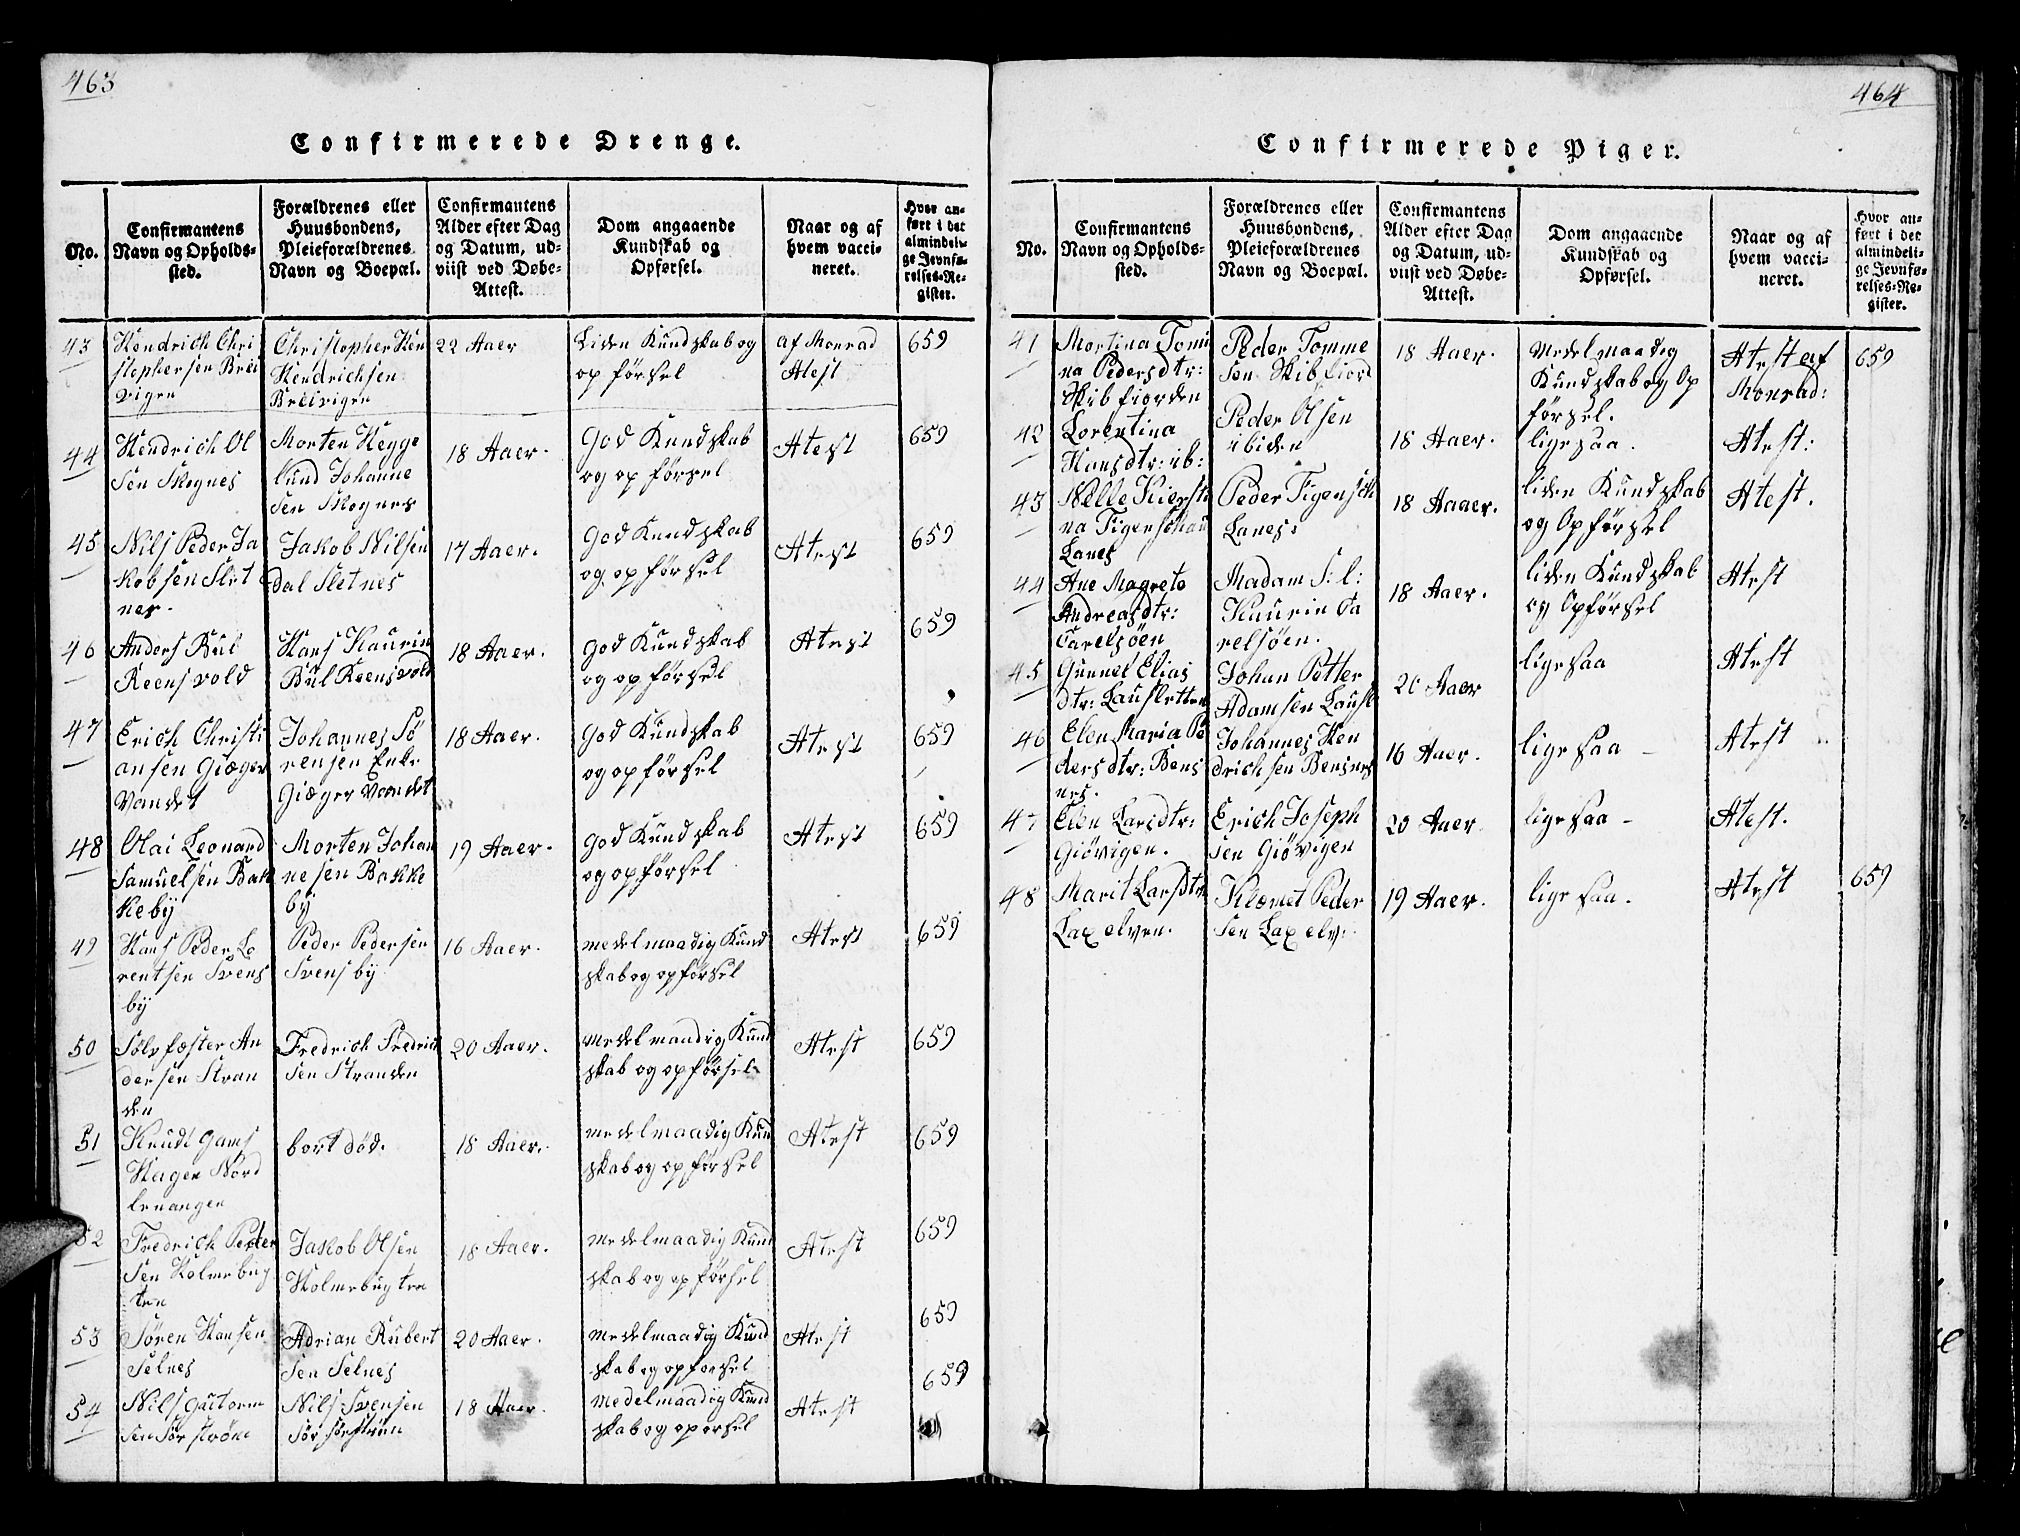 463
Confirmerede Drenge.
No.
Confirmantens
Navn og Opholds-
sted.
Forældrenes eller
Huusbondens,
Pleieforældrenes
Navn og Boepæl.
Confirmantens
Alder efter Dag
og Datum, ud-
viist ved Døbe-
Attest.
Dom angaaende
Kundskab og
Opførsel.
Naar og af
hvem vacci-
neret.
Hvor an-
ført i det
almindeli-
ge Jevnfø-
relses-Re-
gister.
43
Hendrich Chri
stophersen Brei
vigen
Christopher Hen
Hendrichsen
Breivigen
22 Aaer
Liden Kundskab og
opførsel
af Monrad
Atest
659
44
Hendrich Ol
sen Skognes
Morten Hegge
lund Johanne
sen Skognes
18 Aaer.
God Kundskab
og opførsel
Atest
659
45
Nils Peder Ja
kobsen Slet
nes.
Jakob Nilsen
dal Sletnes
17 Aaer.
God Kundskab
og opførsel
Atest
659
46
Anders Bul
Reensvold
Hans Kaurin
Bül Reensvold
18 Aaer.
God Kundskab
og opførsel
Atest
659
47
Erich Christi
ansen Giæger
Vandet
Johannes Sö
rensen Enke
Giæger Vandet
18 Aaer.
God Kundskab
og opførsel
Atest
659
48
Olai Leonard
Samuelsen Bak
keby
Morten Johan
nesen Bakke
by
19 Aaer.
God Kundskab
og opførsel
Atest
659
49
Hans Peder Lo
rentsen Svens
by
Peder Pedersen
Svensby
16 Aaer.
medelmaadig Kund
skab og opførsel
Atest
659
50
Sölvfæster An
dersen Stran
den
Fredrich Fredrich
sen Stranden
20 Aaer.
medelmaadig Kund
skab og opførsel
Atest
659
51
Knudt Gams
Hagen Nord
lenangen
bort död.
18 Aaer.
medelmaadig Kun
skab og opførsel
Atest
659
52
Fredrich Peder
sen Holmebug
ten
Jakob Olsen
Holmebugten
18 Aaer.
medelmaadig Kund
skab og opførsel
Atest
659
53
Søren Hansen
Selnes
Adrian Rubert
sen Selnes
20 Aaer.
medelmaadig Kund
skab og opførsel
Atest
659
54
Nils Gutorm
sen Sör
Nils Svensen
18 Aaer.
medelmaadig Kund
skab og oporsel
Atest
659
464
Confirmerede Piger.
No.
Confirmantens
Navn og Opholds-
sted.
Forældrenes eller
Huusbondens,
Pleieforældrenes
Navn og Boepæl.
Confirmantens
Alder efter Dag
og Datum, ud-
viist ved Døbe-
Attest.
Dom angaaende
Kundskab og
Opførsel.
Naar og af
hvem vacci-
neret.
Hvor an-
ført i det
almindeli-
ge Jevnfø-
relses-Re-
gister.
41
Mortina Tomi
na Pedersdtr:
Skibfiorden
Peder Tomme
sen Skibfiord
18 Aaer.
medelmaadig
Kundskab og Op
försel.
Atest af
Monrad:
659
42
Lorentina
Hansdtr: ib:
Peder Olsen
ibiden
18 Aaer.
ligesaa.
Atest:
43
Nelle Kiersti
na Figenschau
Lanes
Peder Figensch
Lanes:
18 Aaaer.
liden Kundskab
og Opførsel
Atest.
44
Ane Magrete
Andreasdtr:
Carelsöen
Madam S: l:
Kaurin Ca
relsöen.
18 Aaer.
liden Kundskab
og Opførsel
Atest
45
Gunnel Elias
dtr: Lausletten
Johan Petter
Adamsen Lausl
20 Aaer
ligesaa
Atest
46
Elen Maria Pe
dersdtr: Bens
nes.
Johannes Hen
drichsen Bensnes
16 Aaer.
ligesaa -
Atest
47
Elen Larsdtr:
Giövigen.
Erich Joseph
sen Giövigen
20 Aaer.
ligesaa -
Atest.
48
Marit Larsdtr
Laxelven.
Klemet Peder
sen Laxelv:
19 Aaer.
ligesaa.
Atest
659